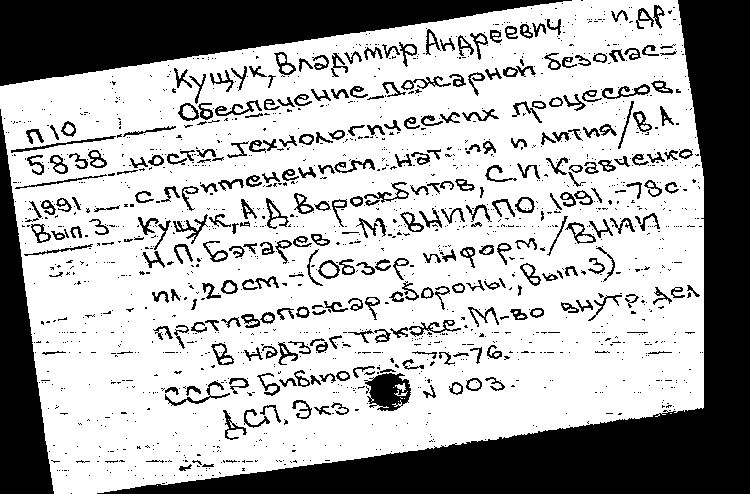 Кущук, Владимир Андреевич и др.
Обеспечение пожарной безопас=
П 10
5838 ности технологических процессов.
с применением натрия и лития / В.А.
1991 Кущук, А.Д. Ворожбитов, С.П. Кравченко
Вып. 3 Н.П. Бэтарев. - М.: ВНИИПО, 1991. - 78с.:
ил.; 20см. - (Обзор. информ. / ВНИИ
противопожар. обороны; Вып. 3)
В надзаг. также: М-во внутр. дел
СССР. Библиогр.: с. 72-76.
ДСП, Экз. N 003.